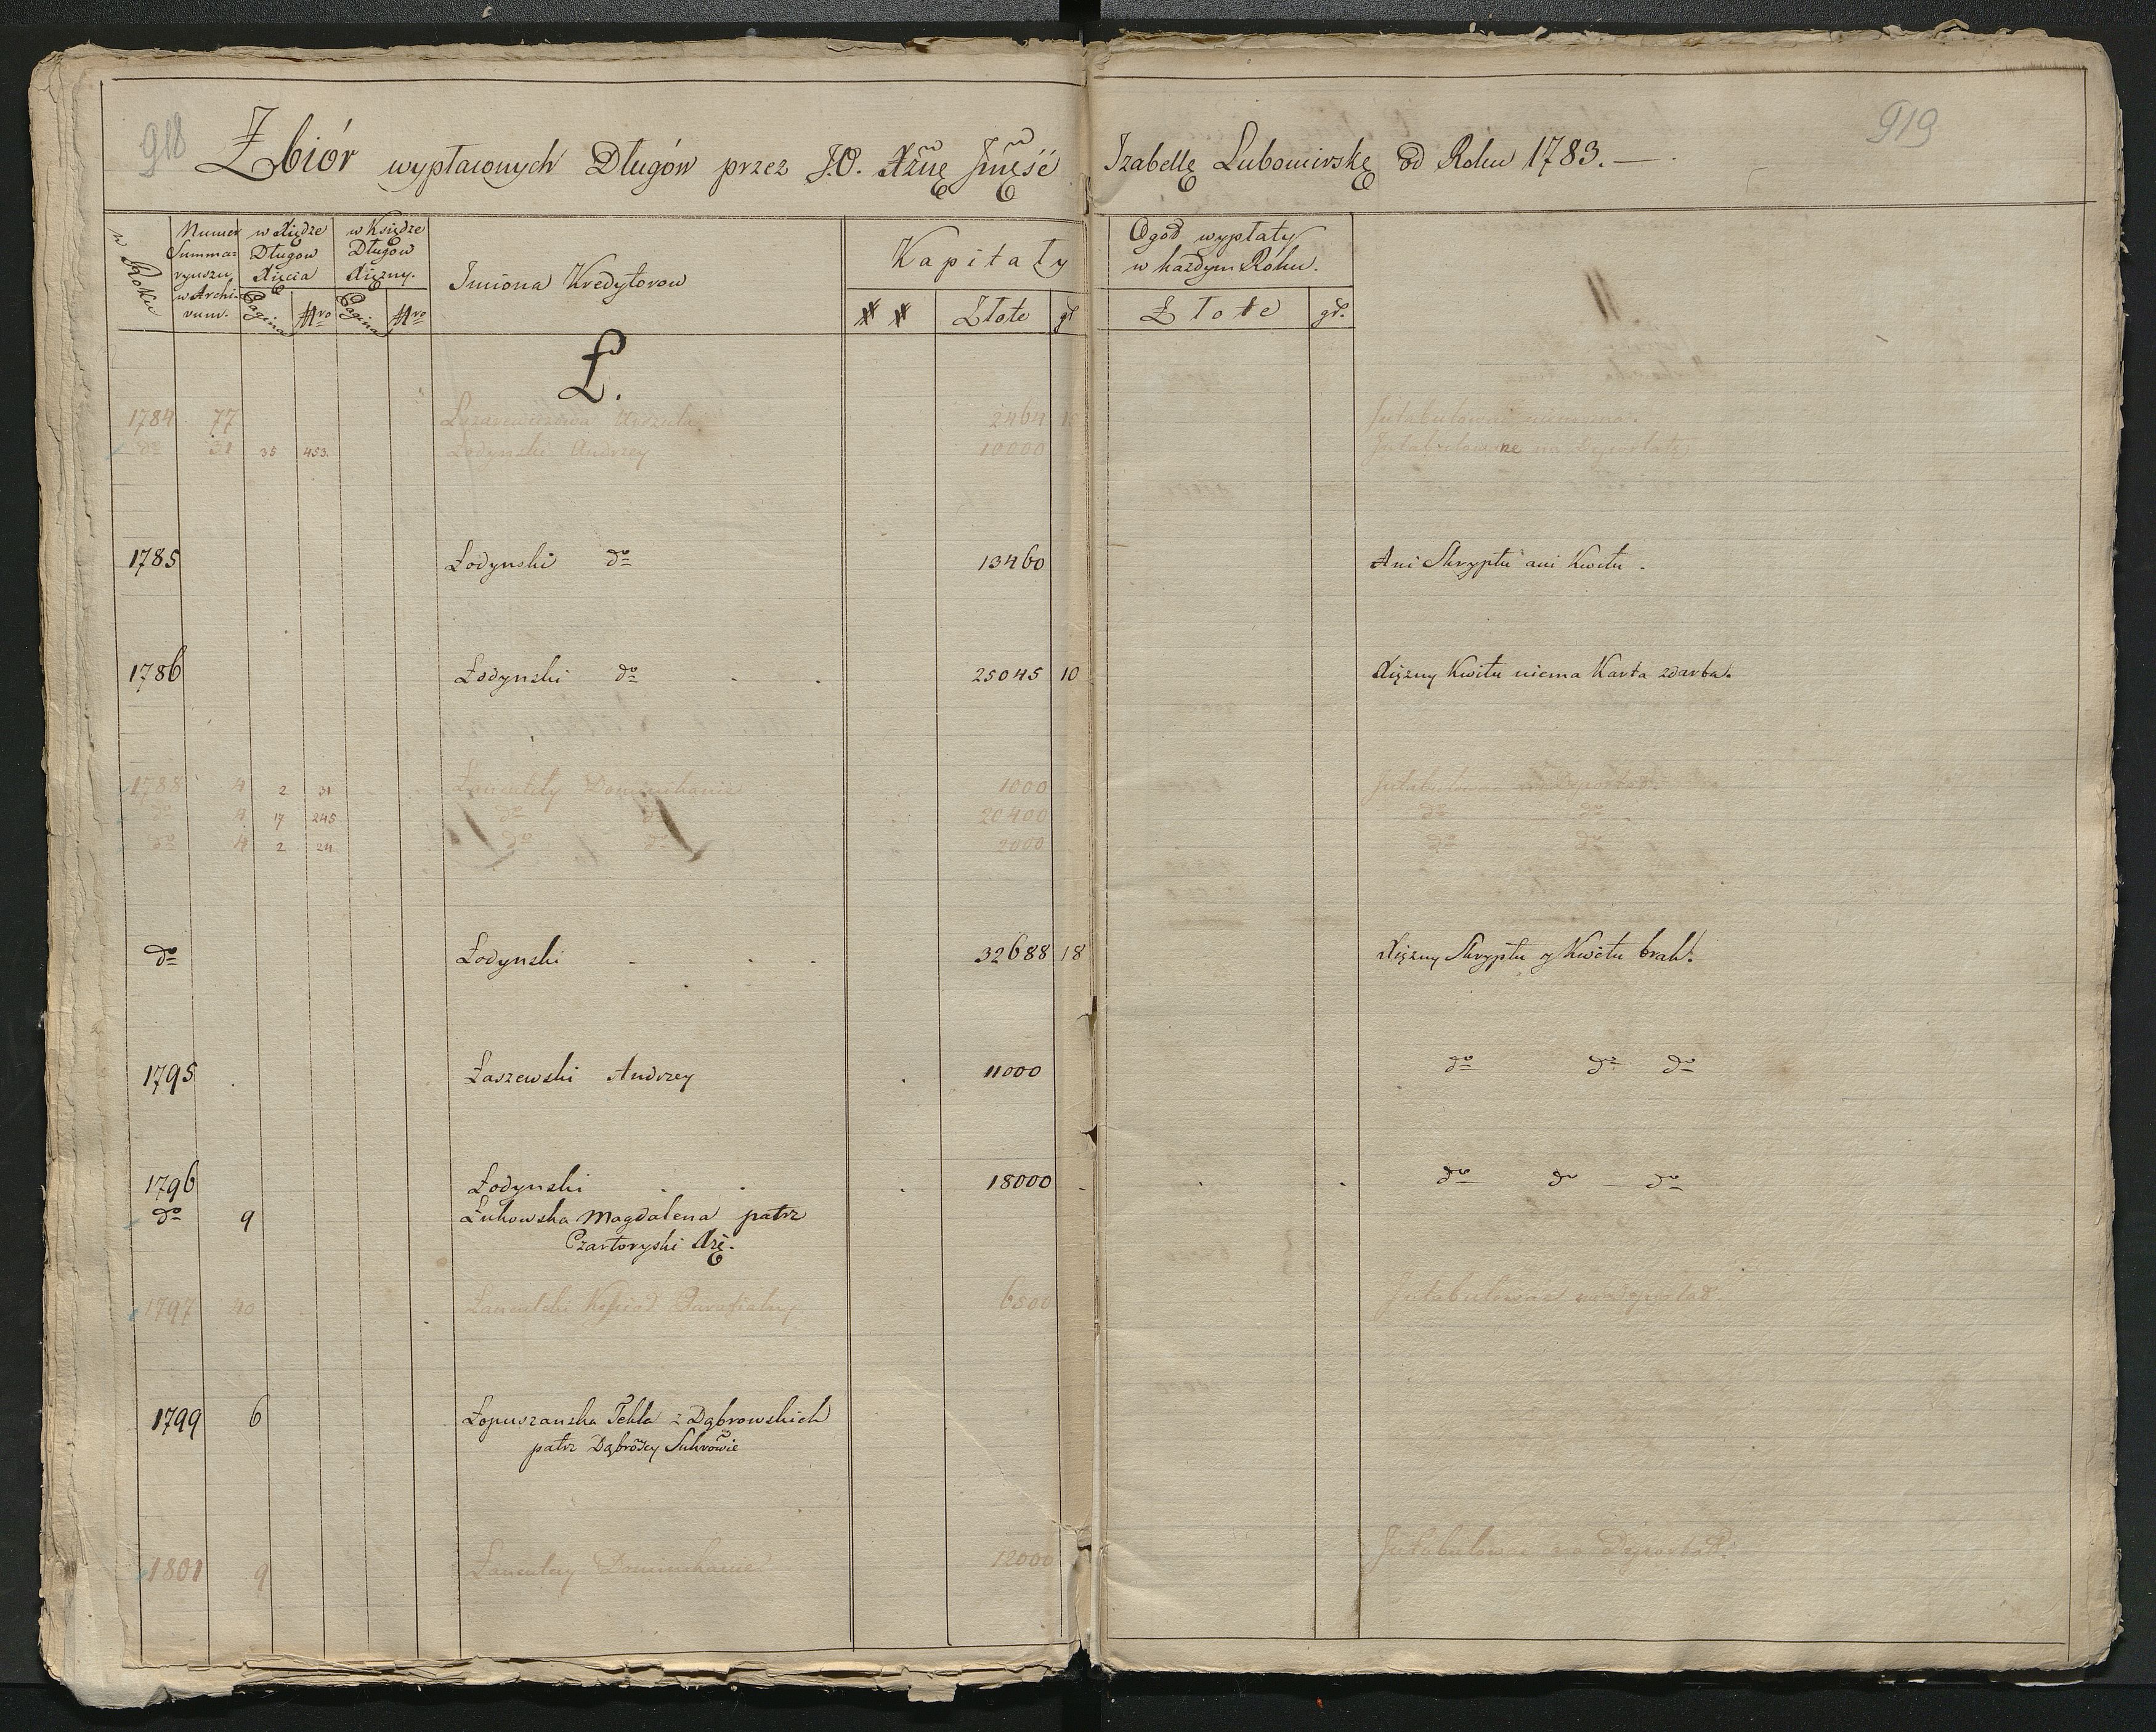 918
919
Zbiór wypłaconych Długów przez J.O. Xżnę Jmęść Izabellę Lubomirskę od Roku 1783. —
w Roku
Numer Summaryuszu w Archivum.
w Xiędze Długow Xięcia
w Księdze Długow Xiężny.
Pagina Nro Pagina Nro
Imiona Kredytorow
Kapitały
## Złote gr
Ogół wypłaty w każdym Róku.
Złote gr.
Ł.
1784 77 Urszula 2464 Intabulowane
do 31 35 453. Łodynski Andrzey 10000 Intabulowane na
1785 Łodynski do 13460 Ani Skryptu ani Kwitu.
1786 Łodynski do 25045 10 Xiężny Kwitu niema Karta zdarta.
1788 4 2 31 Łancuthy Dominikanie 1000
do 4 17 245 do do 20400 do do
do 4 2 24 do do 2000 do do
do Łodynski 32688 18 Xiężny Skryptu y Kwitu brak.
1795 Łaszewski Andrzey 11000 do do do
1796 Łodynski 18000 do do do
do 9 Łukowska Magdalena patrz
Czartoryski Xżę.
1797 40 Łancutski Kościoł Parafialny 6500 Intabulowane
1799 6 Łopuszanska Tekla z Dąbrowskich
patrz Dąbrościy Sukrowie
1801 9 Łancutscy Dominikanie 12000